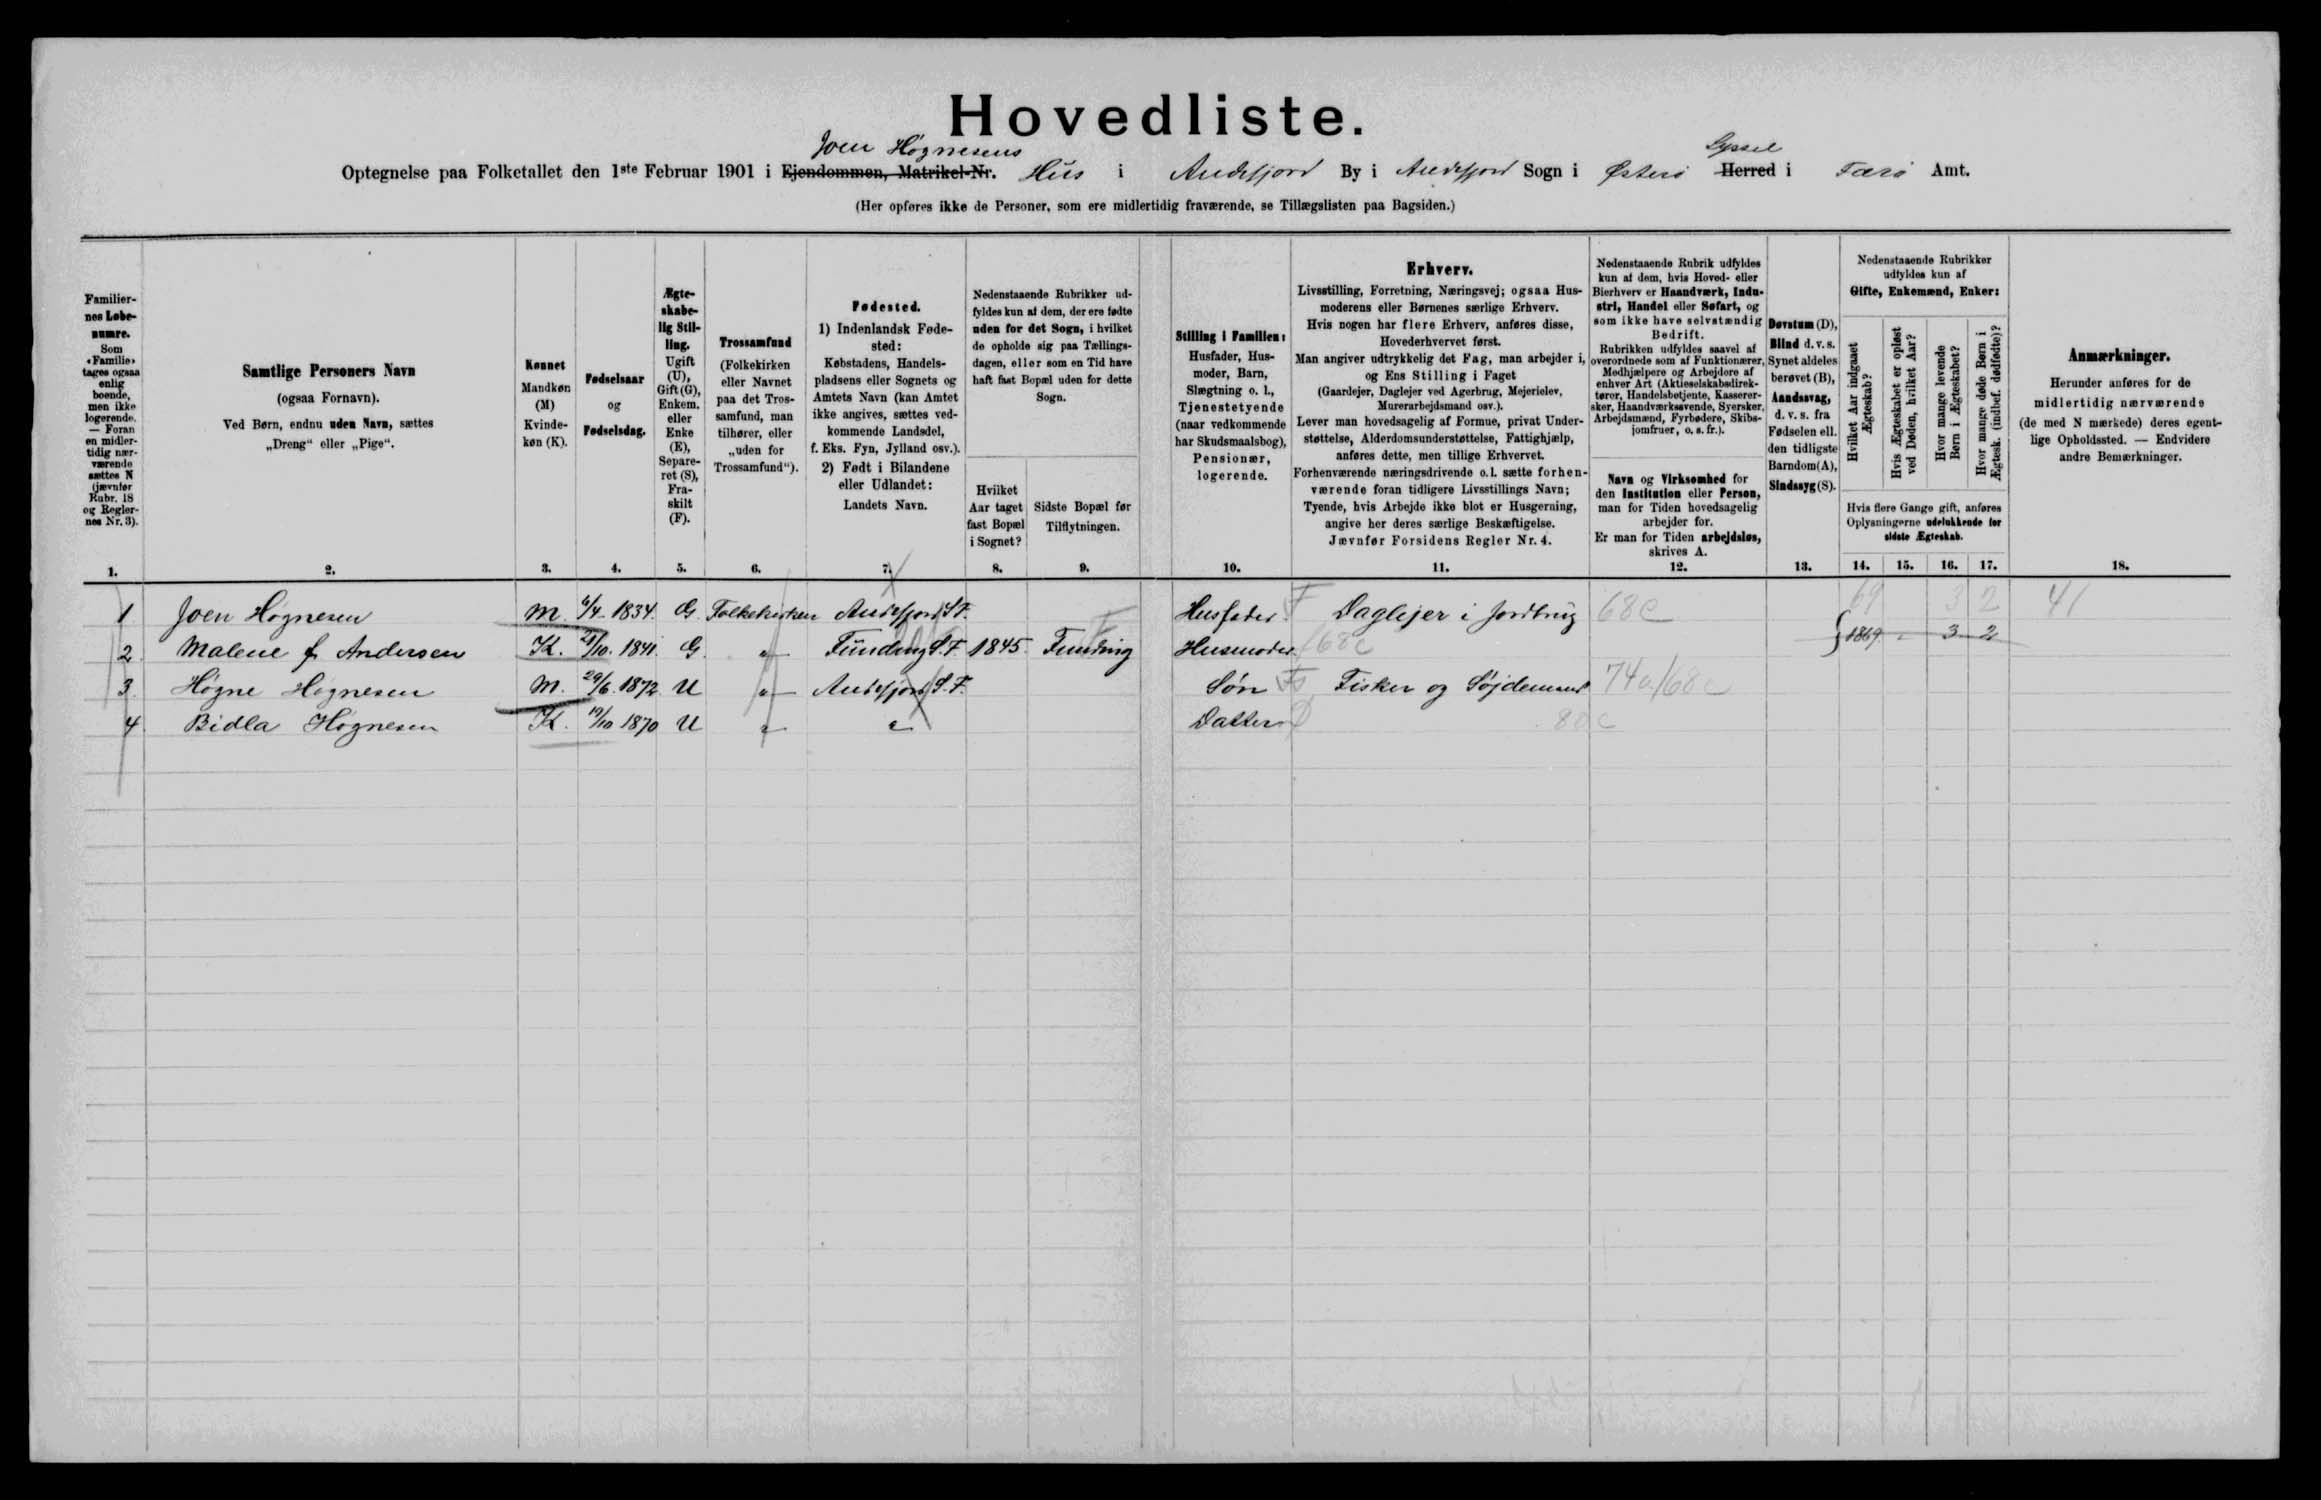 Hovedliste.
Joen Høgnesens
Syssel
Optegnelse paa Folketallet den 1ste Februar 1901 i Ejendommen, Matrikel-Nr. Hus i Andefjord By i Andefjord Sogn i Østerø Herred i Færø Amt.
(Her opføres ikke de Personer, som ere midlertidig fraværende, se Tillægslisten paa Bagsiden.)
Familier-
nes Løbe-
numre.
Som
«Familie»
tages ogsaa
enlig
boende,
men ikke
logerende.
— Foran
en midler-
tidig nær-
værende
sættes N
(jævnfør
Rubr. 18
og Regler-
nes Nr. 3).
1.
Samtlige Personers Navn
(ogsaa Fornavn).
Ved Børn, endnu uden Navn, sættes
„Dreng“ eller „Pige“.
2.
Kønnet
Mandkøn
(M)
Kvinde-
køn (K).
3.
Fødselsaar
og
Fødselsdag.
4.
Ægte-
skabe-
lig Stil-
ling.
Ugift
(U),
Gift (G),
Enkem.
eller
Enke
(E),
Separe-
ret (S),
Fra-
skilt
(F).
5.
Trossamfund
(Folkekirken
eller Navnet
paa det Tros-
samfund, man
tilhører, eller
„uden for
Trossamfund“).
6.
Fødested.
1) Indenlandsk Føde-
sted:
Købstadens, Handels-
pladsens eller Sognets og
Amtets Navn (kan Amtet
ikke angives, sættes ved-
kommende Landsdel,
f. Eks. Fyn, Jylland osv.).
2) Født i Bilandene
eller Udlandet:
Landets Navn.
7.
Nedenstaaende Rubrikker ud-
fyldes kun af dem, der ere fødte
uden for det Sogn, i hvilket
de opholde sig paa Tællings-
dagen, eller som en Tid have
haft fast Bopæl uden for dette
Sogn.
Hvilket
Aar taget
fast Bopæl
i Sognet?
8.
Sidste Bopæl før
Tilflytningen.
9.
Stilling i Familien:
Husfader, Hus-
moder, Barn,
Slægtning o. l.,
Tjenestetyende
(naar vedkommende
har Skudsmaalsbog),
Pensionær,
logerende.
10.
Erhverv.
Livsstilling, Forretning, Næringsvej; ogsaa Hus-
moderens eller Børnenes særlige Erhverv.
Hvis nogen har flere Erhverv, anføres disse,
Hovederhvervet først.
Man angiver udtrykkelig det Fag, man arbejder i,
og Ens Stilling i Faget
(Gaardejer, Daglejer ved Agerbrug, Mejerielev,
Murerarbejdsmand osv.).
Lever man hovedsagelig af Formue, privat Under-
støttelse, Alderdomsunderstøttelse, Fattighjælp,
anføres dette, men tillige Erhvervet.
Forhenværende næringsdrivende o. l. sætte forhen-
værende foran tidligere Livsstillings Navn;
Tyende, hvis Arbejde ikke blot er Husgerning,
angive her deres særlige Beskæftigelse.
Jævnfør Forsidens Regler Nr. 4.
11.
Nedenstaaende Rubrik udfyldes
kun af dem, hvis Hoved- eller
Bierhverv er Haandværk, Indu-
stri, Handel eller Søfart, og
som ikke have selvstændig
Bedrift.
Rubrikken udfyldes saavel af
overordnede som af Funktionærer,
Medhjælpere og Arbejdere af
enhver Art (Aktieselskabsdirek-
tører, Handelsbetjente, Kasserer-
sker, Haandværkssvende, Syersker,
Arbejdsmænd, Fyrbødere, Skibs-
jomfruer, o. s. fr.).
Navn og Virksomhed for
den Institution eller Person,
man for Tiden hovedsagelig
arbejder for.
Er man for Tiden arbejdsløs,
skrives A.
12.
Døvstum (D),
Blind d. v. s.
Synet aldeles
berøvet (B),
Aandssvag,
d. v. s. fra
Fødselen ell.
den tidligste
Barndom (A),
Sindssyg (S).
13.
Nedenstaaende Rubrikker
udfyldes kun af
Gifte, Enkemænd, Enker:
Hvilket Aar indgaaet
Ægteskab?
Hvis Ægteskabet er opløst
ved Døden, hvilket Aar?
Hvor mange levende
Børn i Ægteskabet?
Hvor mange døde Børn i
Ægtesk. (indbef. dødfødte)?
Hvis flere Gange gift, anføres
Oplysningerne udelukkende for
sidste Ægteskab.
14. 15. 16. 17.
Anmærkninger.
Herunder anføres for de
midlertidig nærværende
(de med N mærkede) deres egent-
lige Opholdssted. — Endvidere
andre Bemærkninger.
18.
1 Joen Høgnesen M. 6/4 1834. G Folkekirken Andefjord S.F. Husfader F Daglejer i Jordbrug 68c 69 3 2 41
2 Malene f. Andersen K. 1841. G " Funding S.F. 1845. Funding Husmoder 68c 1869 " 3 2
3 Høgne Høgnesen M. 29/6 1872 U " Andefjord S.F. Søn Fs Fisker og Søjdemand 74a/68c
4 Bidla Høgnesen K. 19/10 1870 U " " Datter D 80c